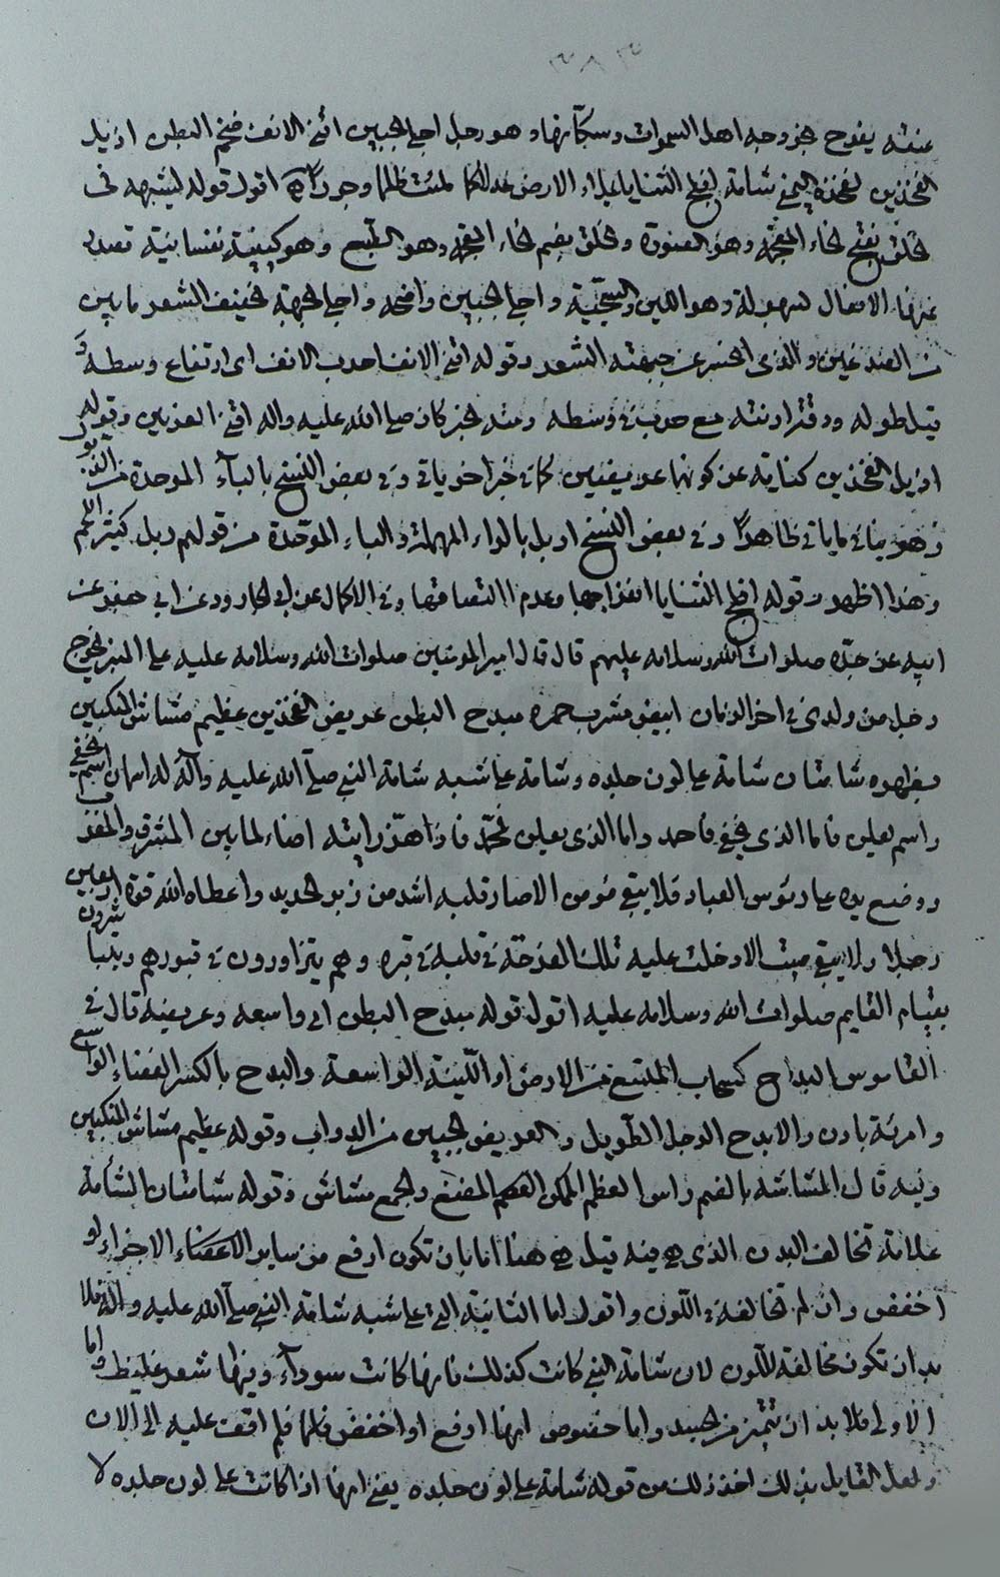 ٣٨٣
عنقه يفرح بخروجه اهل السموات وسكانها وهو رجل اجلى الجبين اقنى الانف ضخم البطن ازيل
الفخذين لفخذه اليمنى شامة افلج الثنايا يملاء الارض عدلا كما ملئت ظلما وجورا اقول قوله ليشبهه فى
الخلق بفتح الخاء المعجمة وهو الصورة والخلق بضم الخاء المعجمة وهو الطبع وهو كيفية نفسانية تصدر
عنها الافعال لسهولة وهو الدين والسجية واجلى الجبين واضحه واجلى الجبهة الخفيف الشعر ما بين
من الصدغين والذى انحسر عن جبهته الشعر وقوله اقنى الانف احدب الانف اى ارتفاع وسطه و
قيل طوله ودقة ارنبته مع حدب فى وسطه ومنه الخبر كان صلى الله عليه واله اقنى العرنين وقوله
ازيل الفخذين كناية عن كونهما عريضين كما فى خبر اخر ياتى وفى بعض النسخ بالباء الموحدة من الزبور
وهو ينافى ما ياتى ظاهرا وفى بعض النسخ اربل بالراء المهملة والباء الموحدة من قولهم ربل كثير اللحم
وهذا اظهر وقوله افلج الثنايا انفراجها وعدم التصاقها وفى الاكمال عن ابى الجارود عن ابى جعفر عن
ابيه عن جده صلوات الله وسلامه عليهم قال قال امير المومنين صلوات الله وسلامه عليه على المنبر يخرج
رجل من ولدى فى اخر الزمان ابيض مشرب حمرة مبدح البطن عريض الفخذين عظيم مشاش المنكبين
بظهره شامتان شامة على لون جلده وشامة على شبه شامة النبى صلى الله عليه واله له اسمان اسم يخفى
واسم يعلن فاما الذى يخفى فاحمد واما الذى يعلن محمد فاذا هز رايته اضاء لها ما بين المشرق والمغرب
ووضع يده على رئوس العباد فلا يبقى مؤمن الا صار قلبه اشد من زبر الحديد واعطاه الله قوة اربعين
رجلا ولا يبقى ميت الا دخلت عليه تلك الفرحة فى قلبه فى قبره وهم يتزاورون فى قبورهم ويتباشرون
بقيام القايم صلوات الله وسلامه عليه اقول قوله مبدح البطن اى واسعه وعريضه قال فى
القاموس البداح كسحاب المتسع من الارض او اللينة الواسعة والبدح بالكسر الفضاء الواسع
وامرئة بادن والابدح الرجل الطويل والعريض الجبين من الدواب وقوله عظيم مشاش المنكبين
وفيه قال المشاشة بالضم راس العظم الممكن المضغ والجمع مشاش وقوله شامتان الشامة
علامة تخالف البدن الذى هى فيه قيل هى هنا اما بان تكون ارفع من ساير الاعضاء الاجزاء او
اخفض وان لم تخالفه فى اللون واقول اما الثانية التى على شبه شامة النبى صلى الله عليه واله فلا
بد ان تكون مخالفة للون لان شامة النبى كانت كذلك فانها كانت سوداء وفيها شعر غليظ واما
الاولى فلا بد ان تتميز من الجسد واما خصوص انها ارفع او اخفض فلم اقف عليه الى الان
ولعل القايل بذلك اخذ ذلك من قوله شامة على لون جلده يعنى انها اذا كانت على لون جلده لا